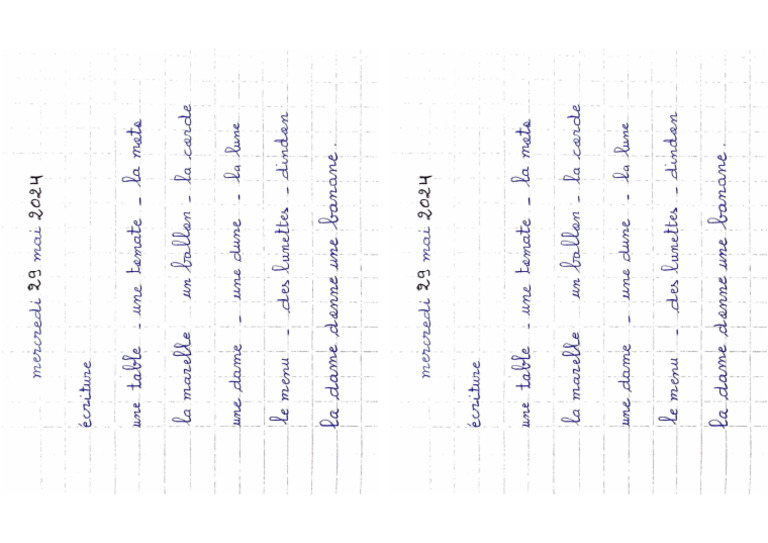 mercredi 29 mai 2024
écriture
une table - une tomate - la moto
la marelle un ballon - la corde
une dame - une dune - la lune
le menu - des lunettes - dindon
la dame donne une banane.
mercredi 29 mai 2024
écriture
une table - une tomate - la moto
la marelle un ballon - la corde
une dame - une dune - la lune
le menu - des lunettes - dindon
la dame donne une banane.